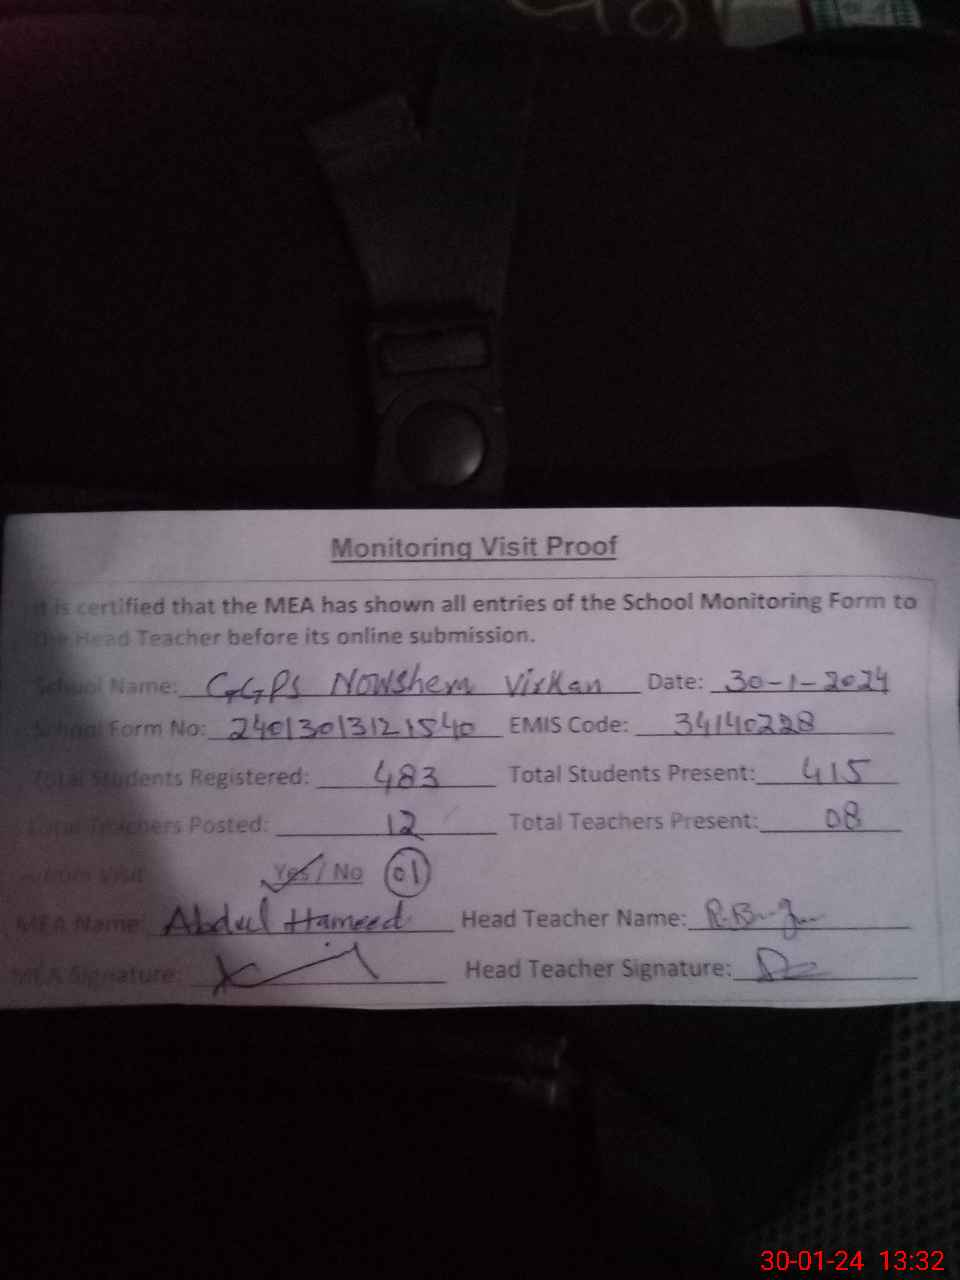 Monitoring Visit Proof
It is certified that the MEA has shown all entries of the School Monitoring Form to
the Head Teacher before its online submission.
School Name: GGPS Nowshera Virkan Date: 30-1-2024
School Form No: 24013013121540 EMIS Code: 34140228
Total Students Registered: 483 Total Students Present: 415
Total Teachers Posted: 12 Total Teachers Present: 08
Visit Yes / No 01
MEA Name: Abdul Hameed Head Teacher Name:
MEA Signature: Head Teacher Signature:
30-01-24 13:32